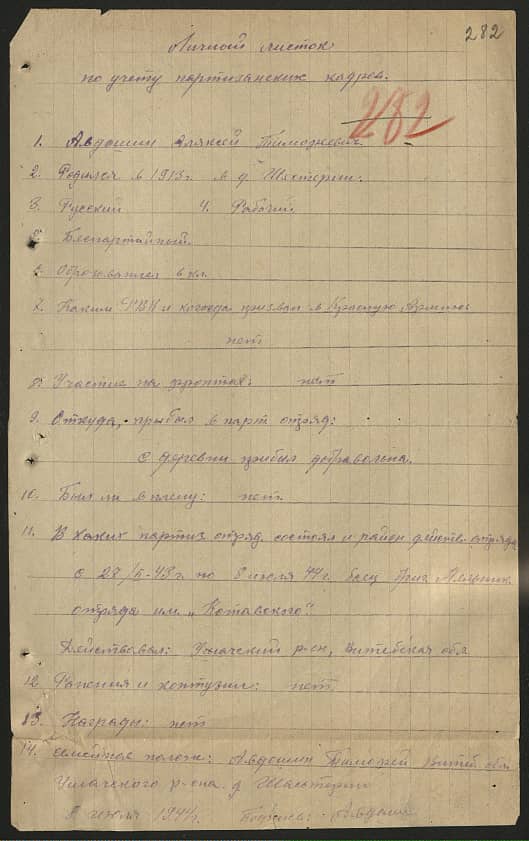 282
Личной листок
по учету партизанских кадров.
282
1. Авдошин Алексей Тимофеевич
2. Родился в 1915 г. в д
3. Русский 4. Рабочий
Беспартийный
Образование кл.
7. Каким РВК и когда призван в Красную Армию
нет
8. Участие на фронтах: нет
9. Откуда, прибыл в парт отряд:
с деревни прибыл добравольна.
10. Был ли в плену: нет
11. В каких партиз. отряд. состоял и район действ. отряда
с 28/ -43 г. по 8 июля 44 г. боец Мельник
отряда им. „Котовского".
Действовал: Ушачский р-он, Витебская обл
12. Ранения и контузии: нет
13. Награды: нет
14. Семейное полож: Авдошин Тимофей Витеб. обл
Ушачского р-она д
июля 1944 г. Подпись: